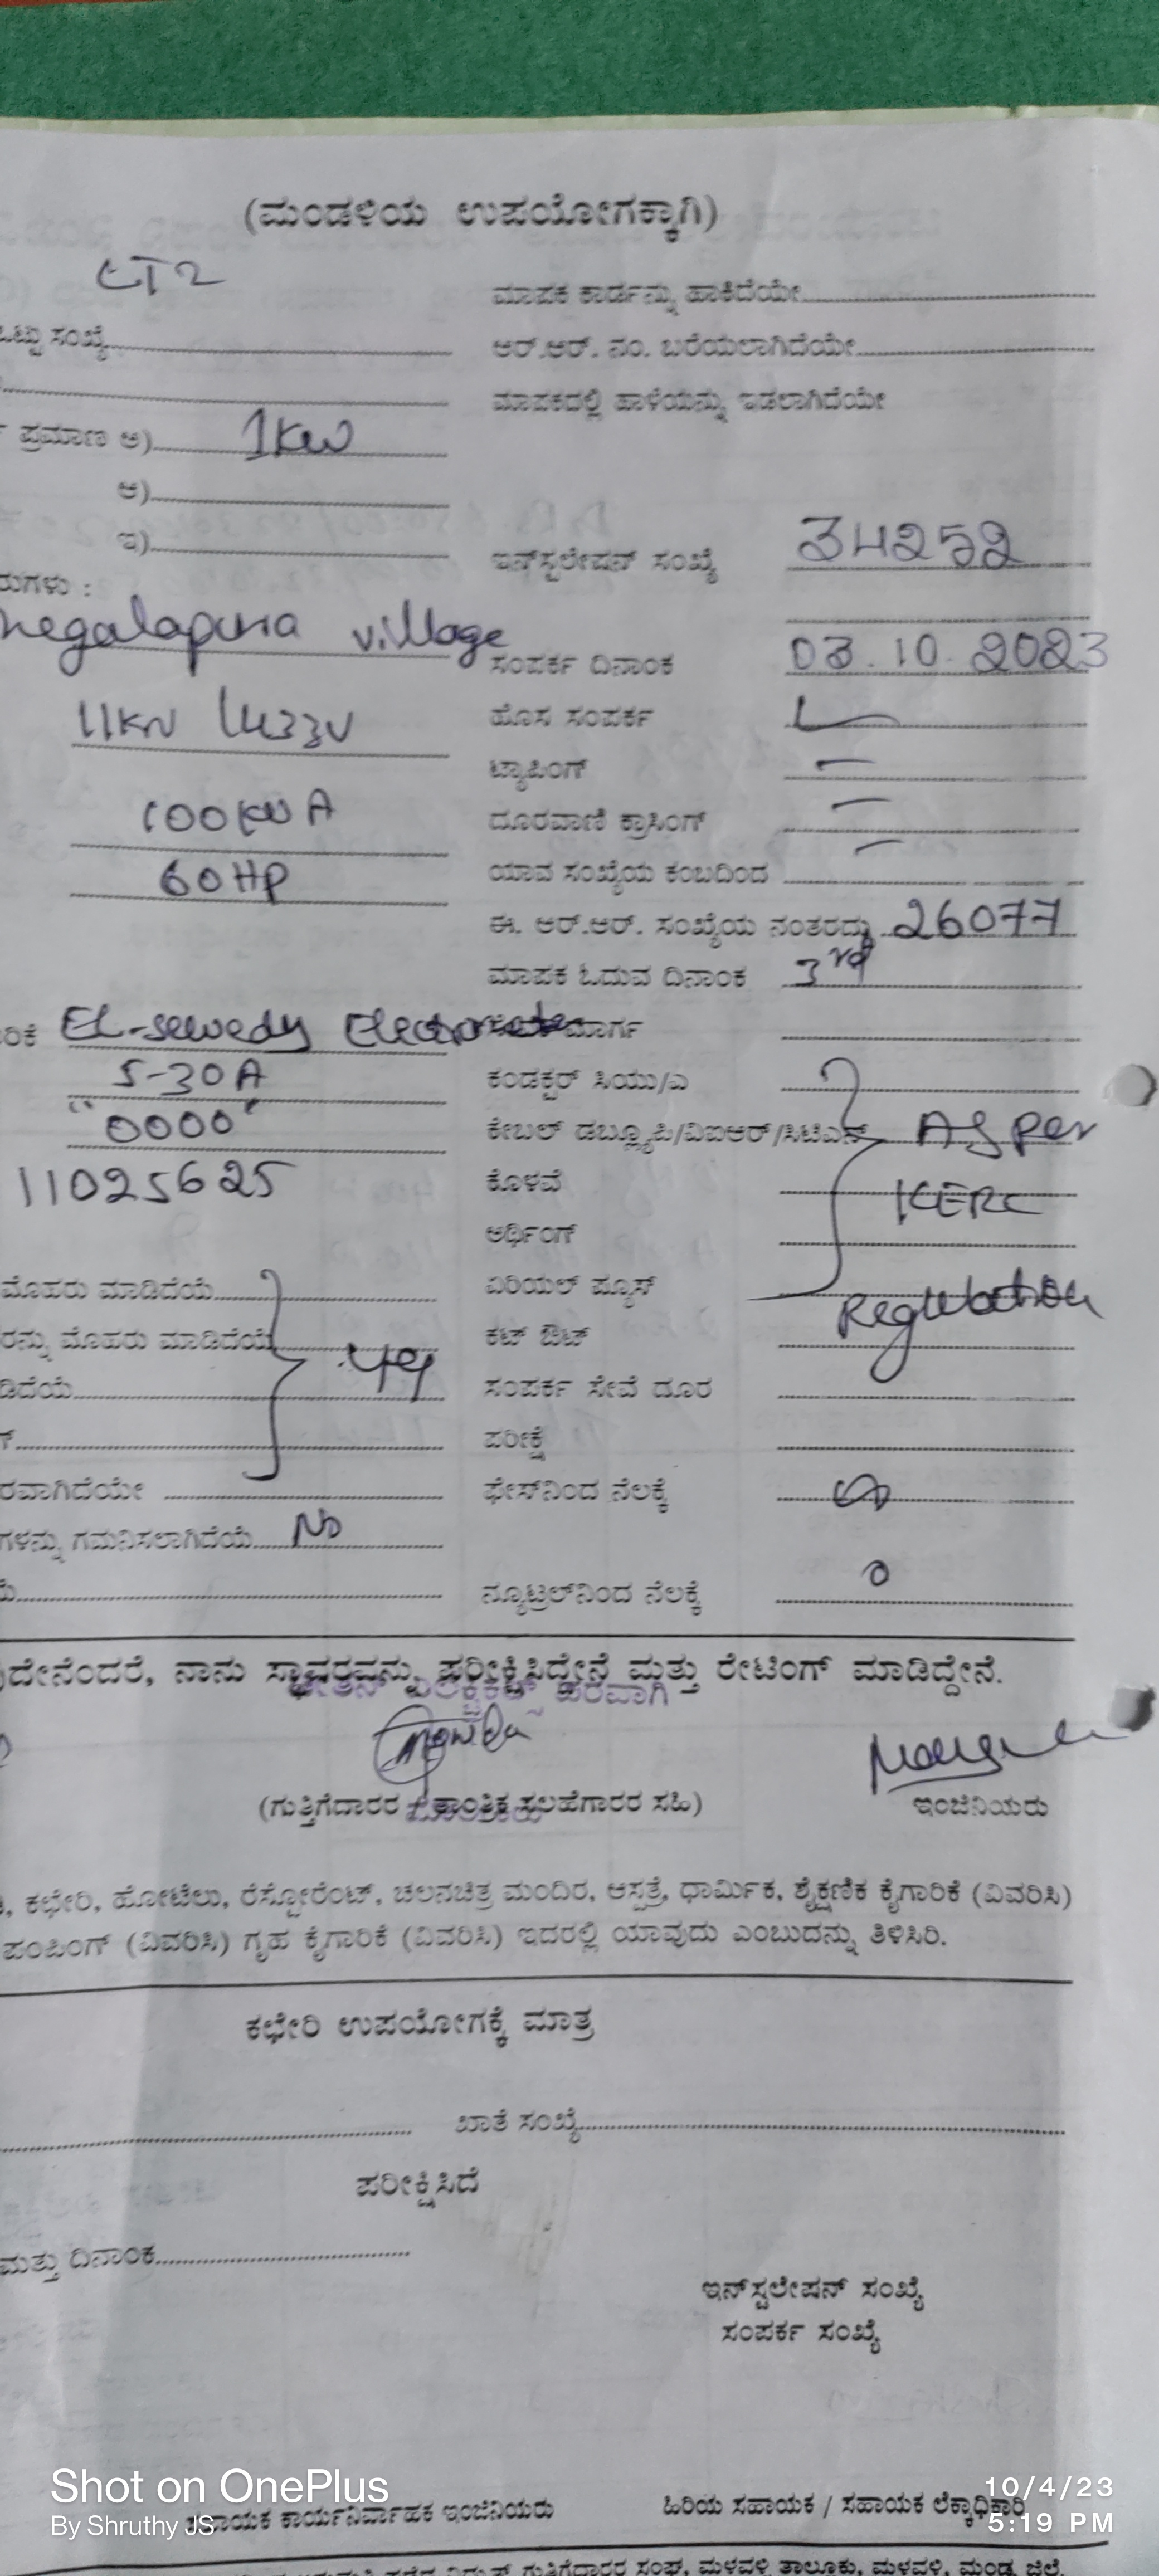 (ಮಂಡಳಿಯ ಉಪಯೋಗಕ್ಕಾಗಿ)
LT2
ಮಾಪಕ ಕಾರ್ಡನ್ನು ಹಾಕಿದೆಯೇ
ಒಟ್ಟು ಸಂಖ್ಯೆ
ಆರ್.ಆರ್. ನಂ. ಬರೆಯಲಾಗಿದೆಯೇ
ಮಾಪಕದಲ್ಲಿ ಹಾಳೆಯನ್ನು ಇಡಲಾಗಿದೆಯೇ
ಪ್ರಮಾಣ ಅ) 1KW
ಆ)
ಇ)
ಇನ್‌ಸ್ಟಲೇಷನ್ ಸಂಖ್ಯೆ 34252
negalapura village
ಸಂಪರ್ಕ ದಿನಾಂಕ 03.10.2023
11KV 433V
ಹೊಸ ಸಂಪರ್ಕ
ಟ್ಯಾಪಿಂಗ್
100KVA
ದೂರವಾಣಿ ಕ್ರಾಸಿಂಗ್
60HP
ಯಾವ ಸಂಖ್ಯೆಯ ಕಂಬದಿಂದ
ಈ. ಆರ್.ಆರ್. ಸಂಖ್ಯೆಯ ನಂತರದ್ದು 26077
ಮಾಪಕ ಓದುವ ದಿನಾಂಕ 3rd
EL-sewedy Electrometer
ಮಾರ್ಗ
5-30A
ಕಂಡಕ್ಟರ್ ಸಿಯು/ಎ
"0000"
ಕೇಬಲ್ ಡಬ್ಲ್ಯೂಪಿ/ವಿಐಆರ್/ಸಿಟಿಎಸ್ As per
11025625
ಕೊಳವೆ KERC
ಅರ್ಥಿಂಗ್
ಮೊಹರು ಮಾಡಿದೆಯೆ
ಏರಿಯಲ್ ಫ್ಯೂಸ್ Regulation
ರನ್ನು ಮೊಹರು ಮಾಡಿದೆಯೆ
ಕಟ್ ಔಟ್
ಡಿದೆಯೆ
ಸಂಪರ್ಕ ಸೇವೆ ದೂರ
ಪರೀಕ್ಷೆ
ರವಾಗಿದೆಯೇ
ಫೇಸ್‌ನಿಂದ ನೆಲಕ್ಕೆ
ಗಳನ್ನು ಗಮನಿಸಲಾಗಿದೆಯೆ No
ನ್ಯೂಟ್ರಲ್‌ನಿಂದ ನೆಲಕ್ಕೆ 0
ದೇನೆಂದರೆ, ನಾನು ಸ್ಥಾವರವನ್ನು ಪರೀಕ್ಷಿಸಿದ್ದೇನೆ ಮತ್ತು ರೇಟಿಂಗ್ ಮಾಡಿದ್ದೇನೆ.
ಪರವಾಗಿ
(ಗುತ್ತಿಗೆದಾರರ / ತಾಂತ್ರಿಕ ಸಲಹೆಗಾರರ ಸಹಿ)
ಇಂಜಿನಿಯರು
ಕಛೇರಿ, ಹೋಟೆಲು, ರೆಸ್ಟೋರೆಂಟ್, ಚಲನಚಿತ್ರ ಮಂದಿರ, ಆಸ್ಪತ್ರೆ, ಧಾರ್ಮಿಕ, ಶೈಕ್ಷಣಿಕ ಕೈಗಾರಿಕೆ (ವಿವರಿಸಿ)
ಪಂಪಿಂಗ್ (ವಿವರಿಸಿ) ಗೃಹ ಕೈಗಾರಿಕೆ (ವಿವರಿಸಿ) ಇದರಲ್ಲಿ ಯಾವುದು ಎಂಬುದನ್ನು ತಿಳಿಸಿರಿ.
ಕಛೇರಿ ಉಪಯೋಗಕ್ಕೆ ಮಾತ್ರ
ಖಾತೆ ಸಂಖ್ಯೆ
ಪರೀಕ್ಷಿಸಿದೆ
ಮತ್ತು ದಿನಾಂಕ
ಇನ್‌ಸ್ಟಲೇಷನ್ ಸಂಖ್ಯೆ
ಸಂಪರ್ಕ ಸಂಖ್ಯೆ
Shot on OnePlus
By Shruthy JS
10/4/23
5:19 PM
ಸಹಾಯಕ ಕಾರ್ಯನಿರ್ವಾಹಕ ಇಂಜಿನಿಯರು
ಹಿರಿಯ ಸಹಾಯಕ / ಸಹಾಯಕ ಲೆಕ್ಕಾಧಿಕಾರಿ
ಗುತ್ತಿಗೆದಾರರ ಸಂಘ, ಮಳವಳ್ಳಿ ತಾಲೂಕು, ಮಳವಳ್ಳಿ, ಮಂಡ್ಯ ಜಿಲ್ಲೆ.